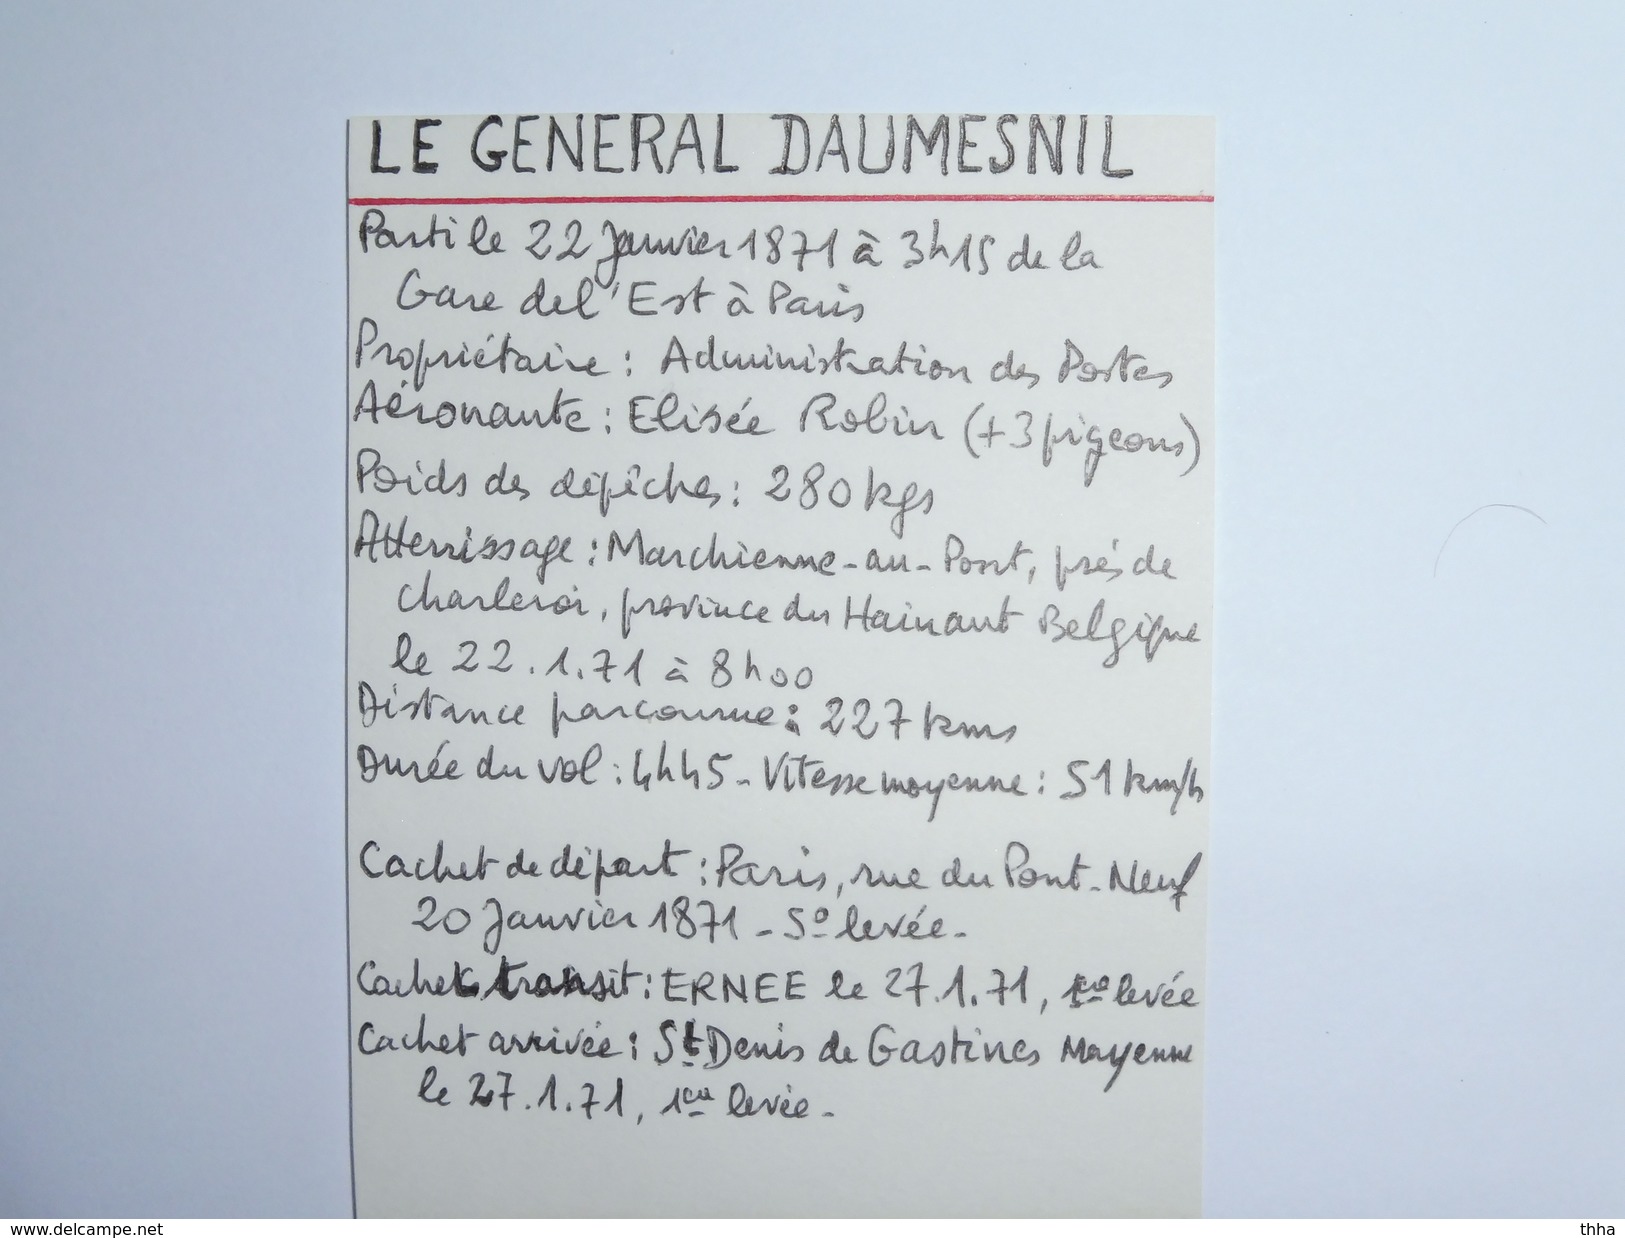 LE GENERAL DAUMESNIL
Parti le 22 Janvier 1871 à 3h15 de la
Gare de l'Est à Paris
Propriétaire : Administration des Postes
Aéronaute : Elisée Robin (+3 pigeons)
Poids des dépêches : 280 kgs
Atterrissage : Marchienne-au-Pont, près de
Charleroi, province du Hainaut Belgique
le 22.1.71 à 8h00
Distance parcourue : 227 kms
Durée du vol : 4h45 - Vitesse moyenne : 51 km/h
Cachet de départ : Paris, rue du Pont-Neuf
20 Janvier 1871 - 5e levée -
Cachet transit : ERNEE le 27.1.71, 1re levée
Cachet arrivée : St Denis de Gastines Mayenne
le 27.1.71, 1ere levée -
www.delcampe.net
thha